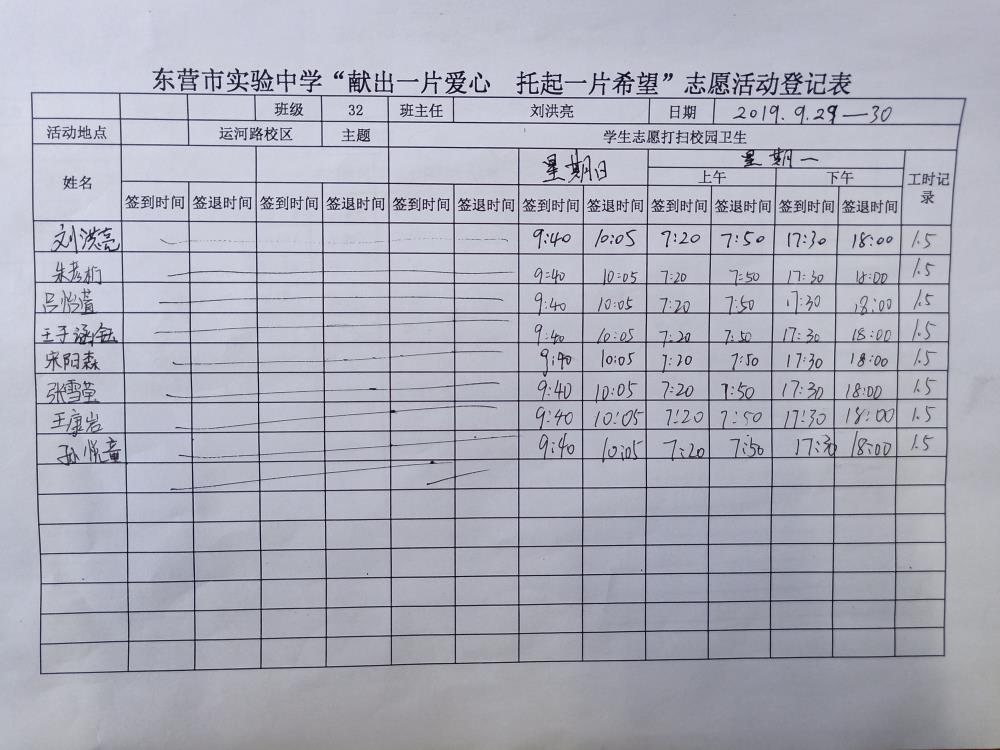 东营市实验中学“献出一片爱心 托起一片希望”志愿活动登记表
班级 32 班主任 刘洪亮 日期 2019.9.29—30
活动地点 运河路校区 主题 学生志愿打扫校园卫生
姓名 星期日 星期一 工时记录
上午 下午
签到时间 签退时间 签到时间 签退时间 签到时间 签退时间 签到时间 签退时间 签到时间 签退时间 签到时间 签退时间
刘洪亮 9:40 10:05 7:20 7:50 17:30 18:00 1.5
朱彦桁 9:40 10:05 7:20 7:50 17:30 18:00 1.5
吕怡萱 9:40 10:05 7:20 7:50 17:30 18:00 1.5
王子涵钰 9:40 10:05 7:20 7:50 17:30 18:00 1.5
宋阳森 9:40 10:05 7:20 7:50 17:30 18:00 1.5
张雪莹 9:40 10:05 7:20 7:50 17:30 18:00 1.5
王康岩 9:40 10:05 7:20 7:50 17:30 18:00 1.5
孙悦童 9:40 10:05 7:20 7:50 17:30 18:00 1.5